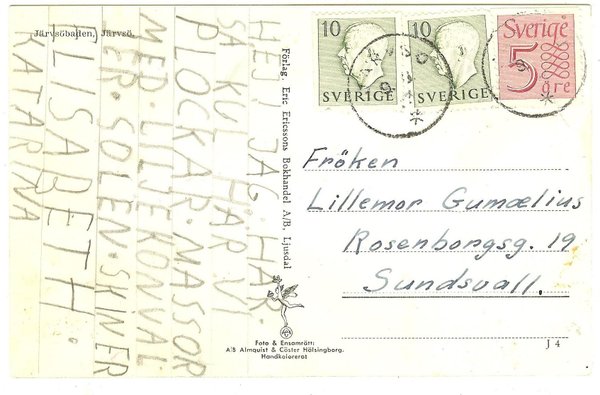 Järvsöbaden, Järvsö.
HEJ! JAG HAR
SÅ KUL HÄR. VI
PLOCKAR MASSOR
MED LILJEKONVAL
JER. SOLEN SKINER
ELISABETH.
KATARINA
Förlag. Eric Ericssons Bokhandel A/B, Ljusdal
10
SVERIGE
10
SVERIGE
Sverige
5
öre
JÄRVSÖ
Fröken
Lillemor Gumælius
Rosenborgsg. 19
Sundsvall.
Foto & Ensamrätt:
A/B Almquist & Cöster Hälsingborg.
Handkolorerat
J 4